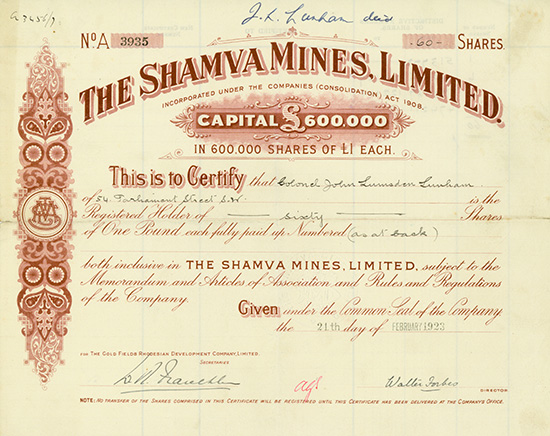 J. L. Lunham decd
No. A 3935 60 SHARES.
THE SHAMVA MINES, LIMITED.
INCORPORATED UNDER THE COMPANIES (CONSOLIDATION) ACT 1908.
CAPITAL £600,000
IN 600,000 SHARES OF £1 EACH.
This is to Certify that Colonel John Lumsden Lunham
of 54. Parliament Street S.W. is the
Registered Holder of sixty Shares
of One Pound each fully paid up Numbered (as at back)
both inclusive in THE SHAMVA MINES, LIMITED, subject to the
Memorandum and Articles of Association and Rules and Regulations
of the Company.
Given under the Common Seal of the Company
the 21th day of FEBRUARY 1923
FOR THE GOLD FIELDS RHODESIAN DEVELOPMENT COMPANY, LIMITED.
SECRETARIES
Walter Forbes
DIRECTOR
NOTE: NO TRANSFER OF THE SHARES COMPRISED IN THIS CERTIFICATE WILL BE REGISTERED UNTIL THIS CERTIFICATE HAS BEEN DELIVERED AT THE COMPANY'S OFFICE.